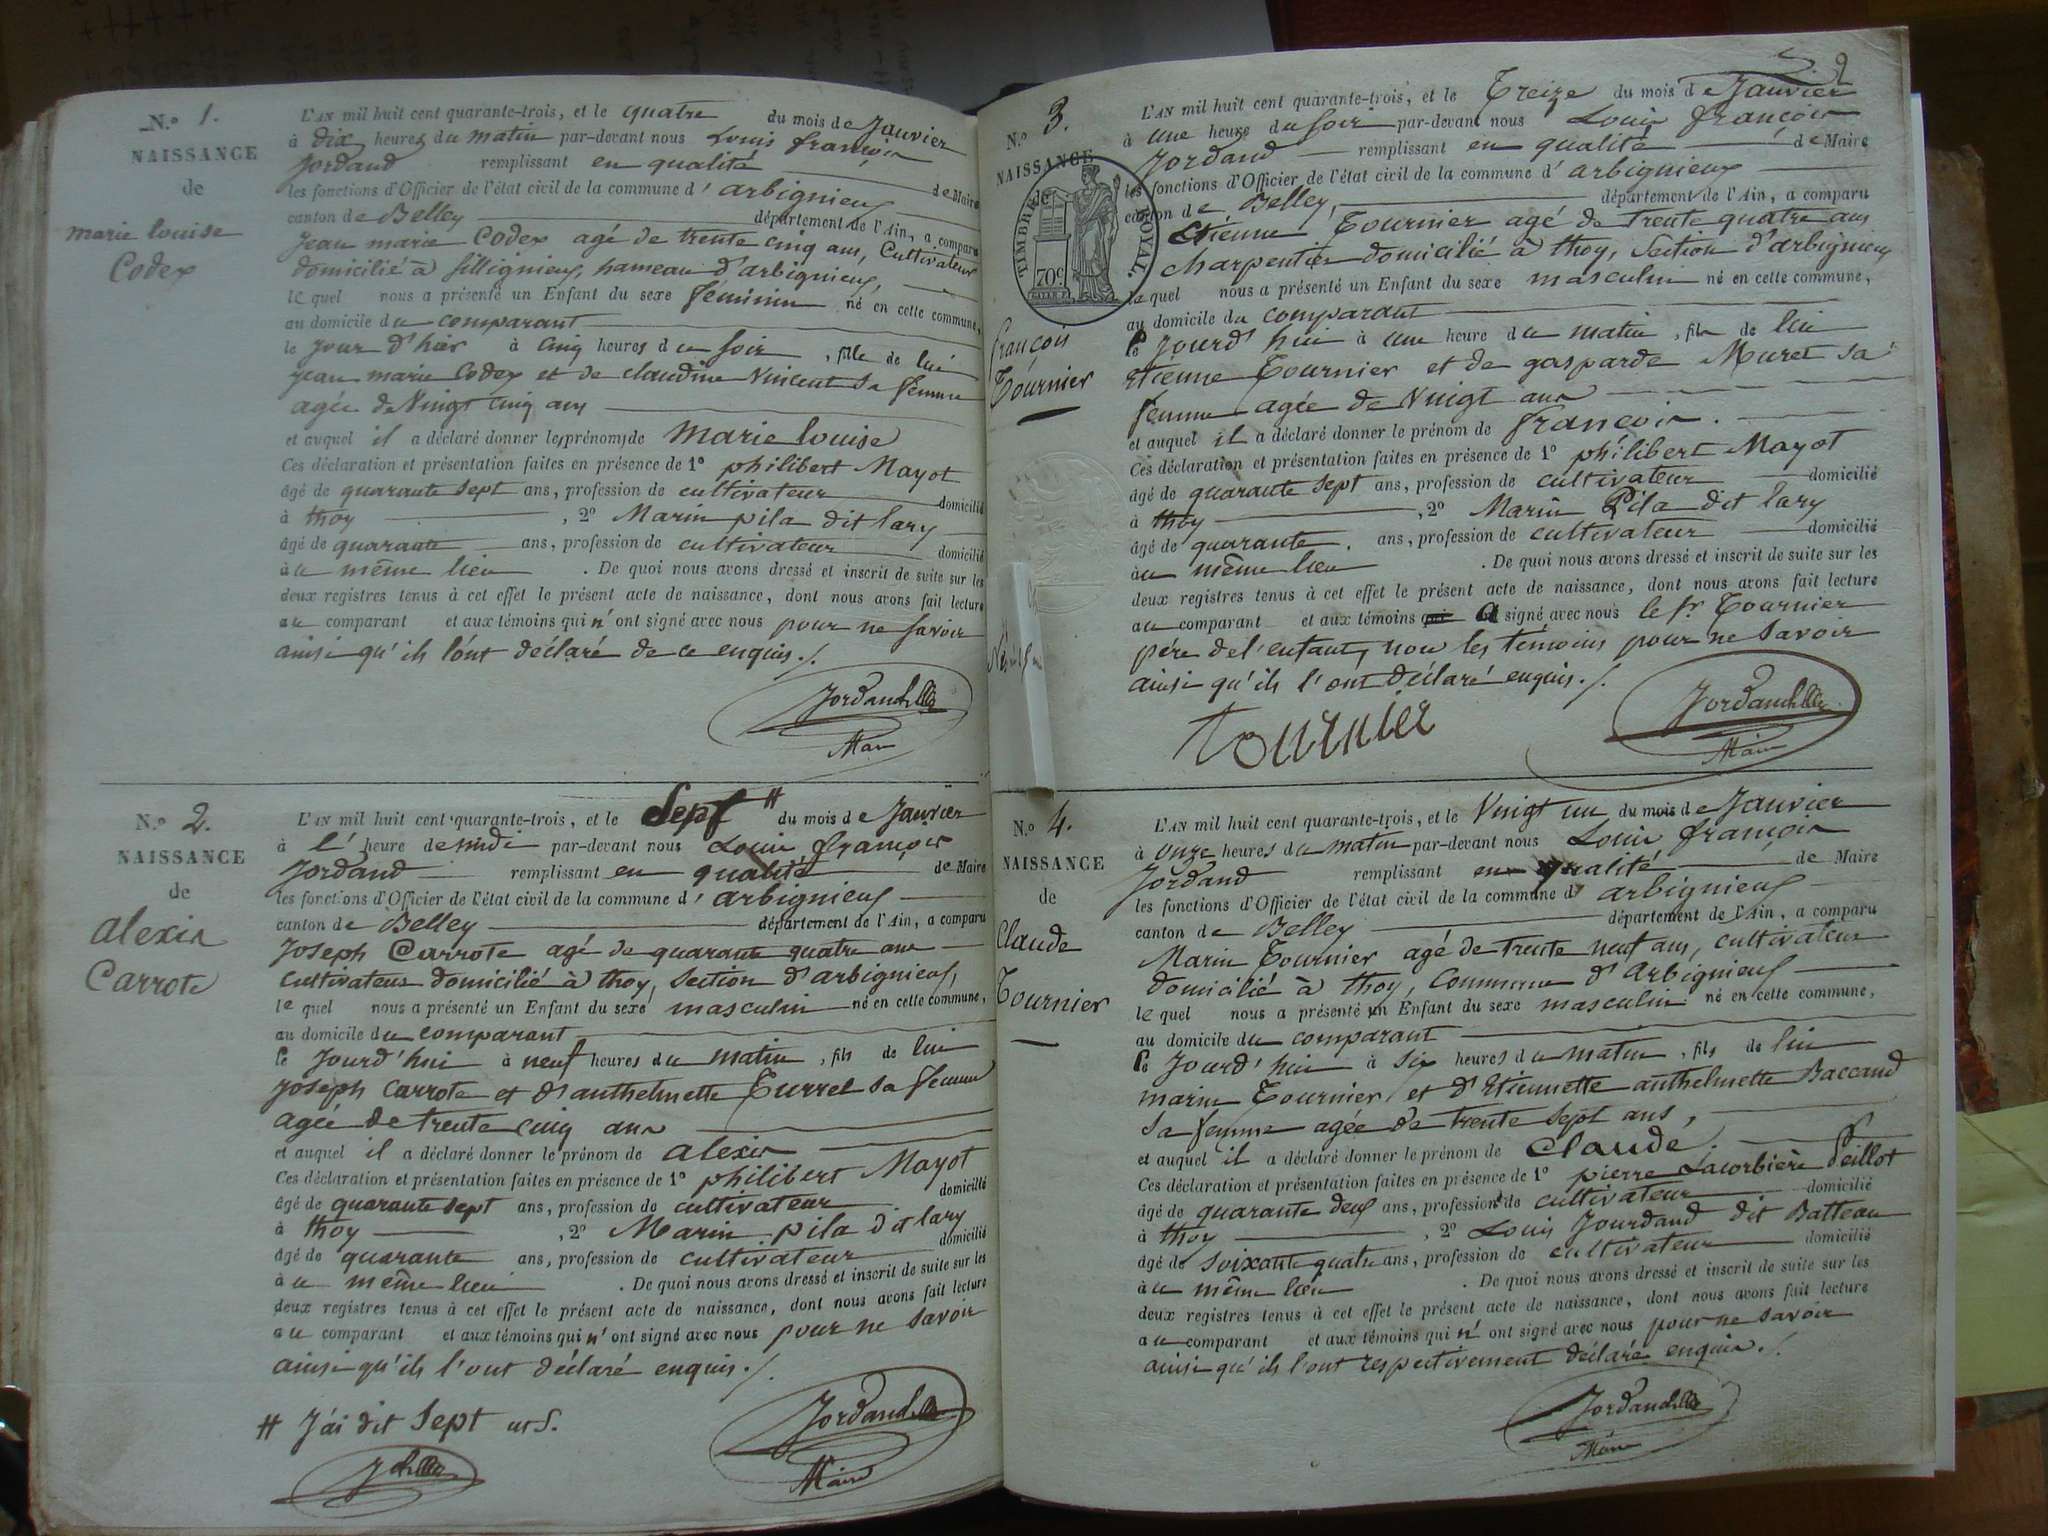 N.° 1.
NAISSANCE
de
marie louise
Codex
L'AN mil huit cent quarante-trois, et le quatre du mois de Janvier
à dix heures du matin par-devant nous Louis françois
Jordand remplissant en qualité de Maire
les fonctions d'Officier de l'état civil de la commune d'arbignieu
canton de Belley département de l'Ain, a comparu
Jean marie Codex agé de trente cinq ans, Cultivateur
domicilié à fillignieu, hameau d'arbignieu,
le quel nous a présenté un Enfant du sexe féminin né en cette commune,
au domicile du comparant
le jour d'hier à cinq heures du soir, fille de lui
jean marie Codex et de claudine Vincent sa femme
agée de Vingt cinq ans
et auquel il a déclaré donner les prénoms de marie louise
Ces déclaration et présentation faites en présence de 1° philibert Mayot
âgé de quarante sept ans, profession de cultivateur domicilié
à thoy, 2° Marin pila dit lary
âgé de quarante ans, profession de cultivateur domicilié
au même lieu. De quoi nous avons dressé et inscrit de suite sur les
deux registres tenus à cet effet le présent acte de naissance, dont nous avons fait lecture
au comparant et aux témoins qui n'ont signé avec nous pour ne savoir
ainsi qu'ils l'ont déclaré de ce enquis./.
Jordand
Maire
N.° 2.
NAISSANCE
de
alexis
Carrote
L'AN mil huit cent quarante-trois, et le Sept # du mois de Janvier
à l'heure de midi par-devant nous Louis françois
Jordand remplissant en qualité de Maire
les fonctions d'Officier de l'état civil de la commune d'arbignieu
canton de Belley département de l'Ain, a comparu
Joseph Carrote agé de quarante quatre ans
cultivateur domicilié à thoy, section d'arbignieu,
le quel nous a présenté un Enfant du sexe masculin né en cette commune,
au domicile du comparant
le jourd'hui à neuf heures du matin, fils de lui
joseph Carrote et d'anthelmette Turrel sa femme
agée de trente cinq ans
et auquel il a déclaré donner le prénom de alexis
Ces déclaration et présentation faites en présence de 1° philibert Mayot
âgé de quarante sept ans, profession de cultivateur domicilié
à thoy, 2° Marin pila dit lary
âgé de quarante ans, profession de cultivateur domicilié
au même lieu. De quoi nous avons dressé et inscrit de suite sur les
deux registres tenus à cet effet le présent acte de naissance, dont nous avons fait lecture
au comparant et aux témoins qui n'ont signé avec nous pour ne savoir
ainsi qu'ils l'ont déclaré enquis./.
# J'ai dit Sept
Jordand
Maire
2
N.° 3.
NAISSANCE
de
TIMBRE ROYAL
70c
françois
Tournier
L'AN mil huit cent quarante-trois, et le Treize du mois de Janvier
à une heure du soir par-devant nous Louis françois
Jordand remplissant en qualité de Maire
les fonctions d'Officier de l'état civil de la commune d'arbignieu
canton de Belley, département de l'Ain, a comparu
Etienne Tournier agé de trente quatre ans
charpentier domicilié à thoy, section d'arbignieu
le quel nous a présenté un Enfant du sexe masculin né en cette commune,
au domicile du comparant
le jourd'hui à une heure du matin, fils de lui
Etienne Tournier et de gasparde Muret sa
femme agée de Vingt ans
et auquel il a déclaré donner le prénom de françois.
Ces déclaration et présentation faites en présence de 1° philibert Mayot
âgé de quarante sept ans, profession de cultivateur domicilié
à thoy, 2° Marin Pila dit lary
âgé de quarante. ans, profession de cultivateur domicilié
au même lieu. De quoi nous avons dressé et inscrit de suite sur les
deux registres tenus à cet effet le présent acte de naissance, dont nous avons fait lecture
au comparant et aux témoins qui a signé avec nous le sr. Tournier
père de l'enfant, non les témoins pour ne savoir
ainsi qu'ils l'ont déclaré enquis./.
Tournier
Jordand
Maire
N.° 4.
NAISSANCE
de
Claude
Tournier
L'AN mil huit cent quarante-trois, et le Vingt un du mois de Janvier
à onze heures du matin par-devant nous Louis françois
Jordand remplissant en qualité de Maire
les fonctions d'Officier de l'état civil de la commune d'arbignieu
canton de Belley département de l'Ain, a comparu
Marin Tournier agé de trente neuf ans, cultivateur
domicilié à thoy, Commune d'Arbignieu
le quel nous a présenté un Enfant du sexe masculin né en cette commune,
au domicile du comparant
le jourd'hui à six heures du matin, fils de lui
marin Tournier et d'Etiennette anthelmette Baccand
sa femme agée de trente sept ans,
et auquel il a déclaré donner le prénom de Claude.
Ces déclaration et présentation faites en présence de 1° pierre Lacorbière Peillot
âgé de quarante deux ans, profession de cultivateur domicilié
à thoy, 2° Louis Jourdand dit Batteau
âgé de soixante quatre ans, profession de cultivateur domicilié
au même lieu. De quoi nous avons dressé et inscrit de suite sur les
deux registres tenus à cet effet le présent acte de naissance, dont nous avons fait lecture
au comparant et aux témoins qui n'ont signé avec nous pour ne savoir
ainsi qu'ils l'ont respectivement déclaré enquis./.
Jordand
Maire